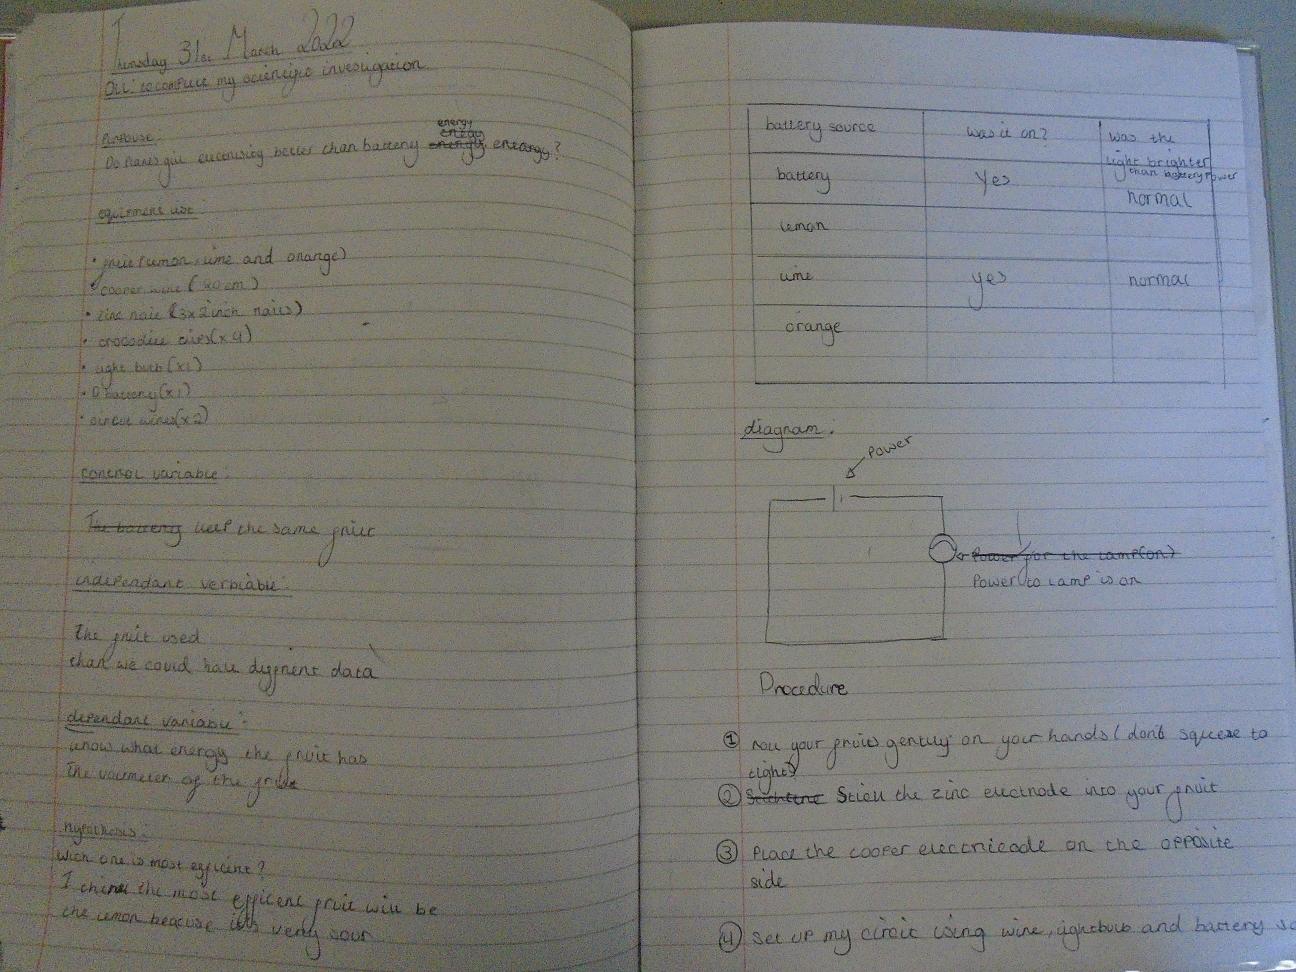 Thursday 31st March 2022
OLI: to complete my scientific investigation.
Purpouse:
Do fruits give electricity better than battery energy?
equipment use:
• fruit (lemon, lime and orange)
• cooper wire (40 cm)
• zinc nail (3x2 inch nails)
• crocodile clips (x4)
• light bulb (x1)
• D battery (x1)
• circut wires (x2)
control variable:
The battery keep the same fruit
independant verbiable:
The fruit used
than we could have diffrent data
dependant variable:
know what energy the fruit has
The voltmeter of the fruit
hypothesis:
wich one is most efficent?
I think the most efficent fruit will be
the lemon beacuse its very sour
battery source was it on? was the
light brighter
than battery power
battery Yes normal
lemon
lime yes normal
orange
diagram:
Power
Power for the lamp(on)
Power to lamp is on
Procedure
① roll your fruits gently on your hands (don't squeeze to
tight)
② Stick the zinc electrode into your fruit
③ Place the cooper electricode on the opposite
side
④ Set up my circit using wire, lightbulb and battery so